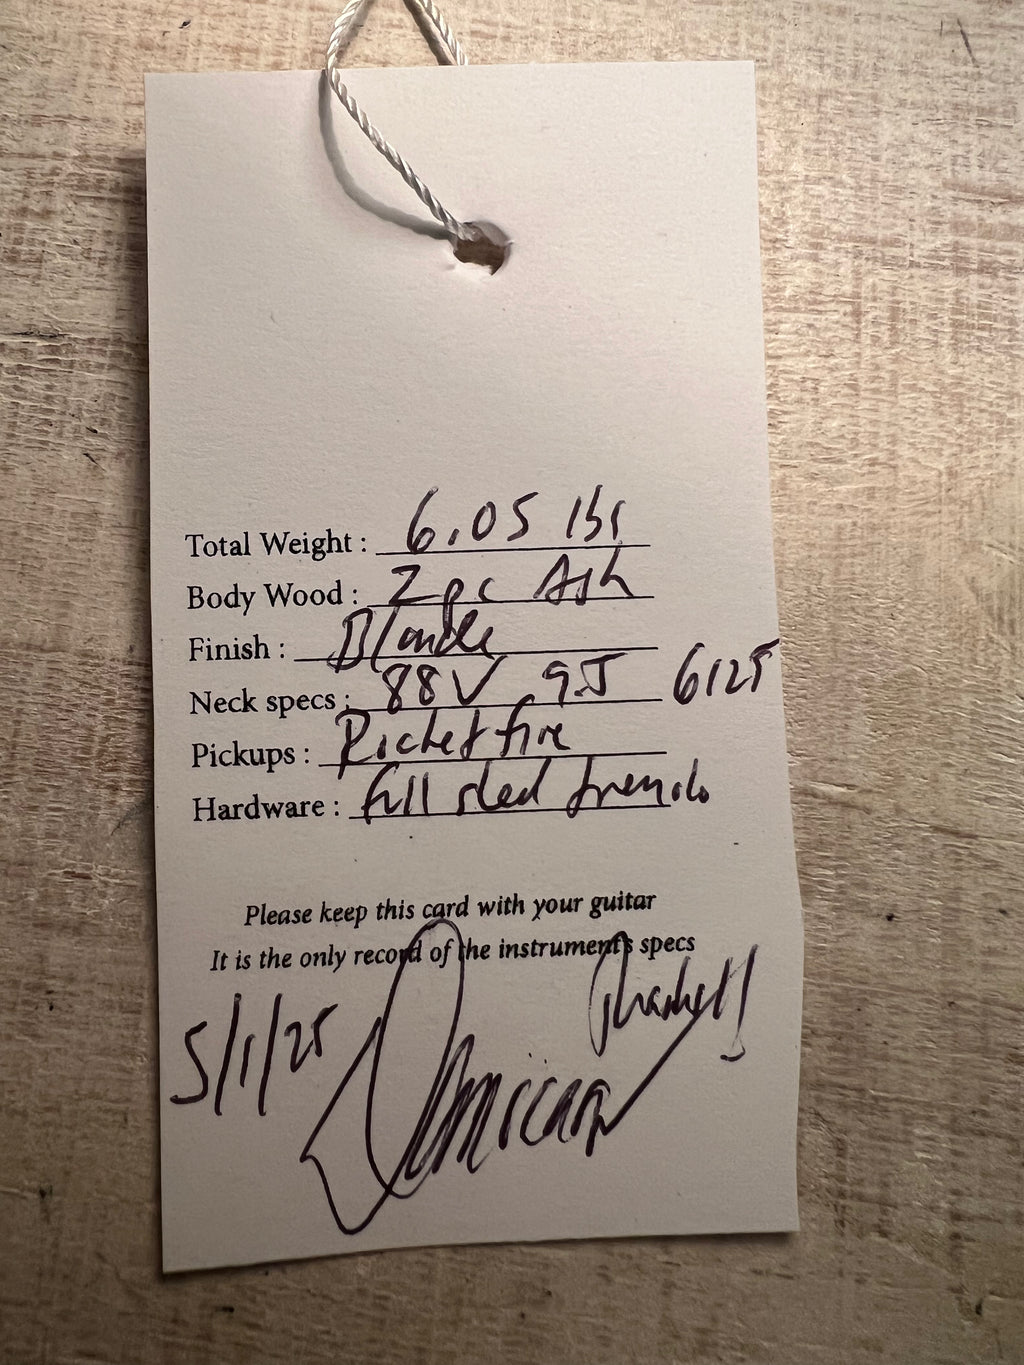 Total Weight : 6.05 lbs
Body Wood : 2 pc Ash
Finish : Blonde
Neck specs : 88V 9.5 6125
Pickups : Rocketfire
Hardware : full steel tremolo
Please keep this card with your guitar
It is the only record of the instrument's specs
5/1/25